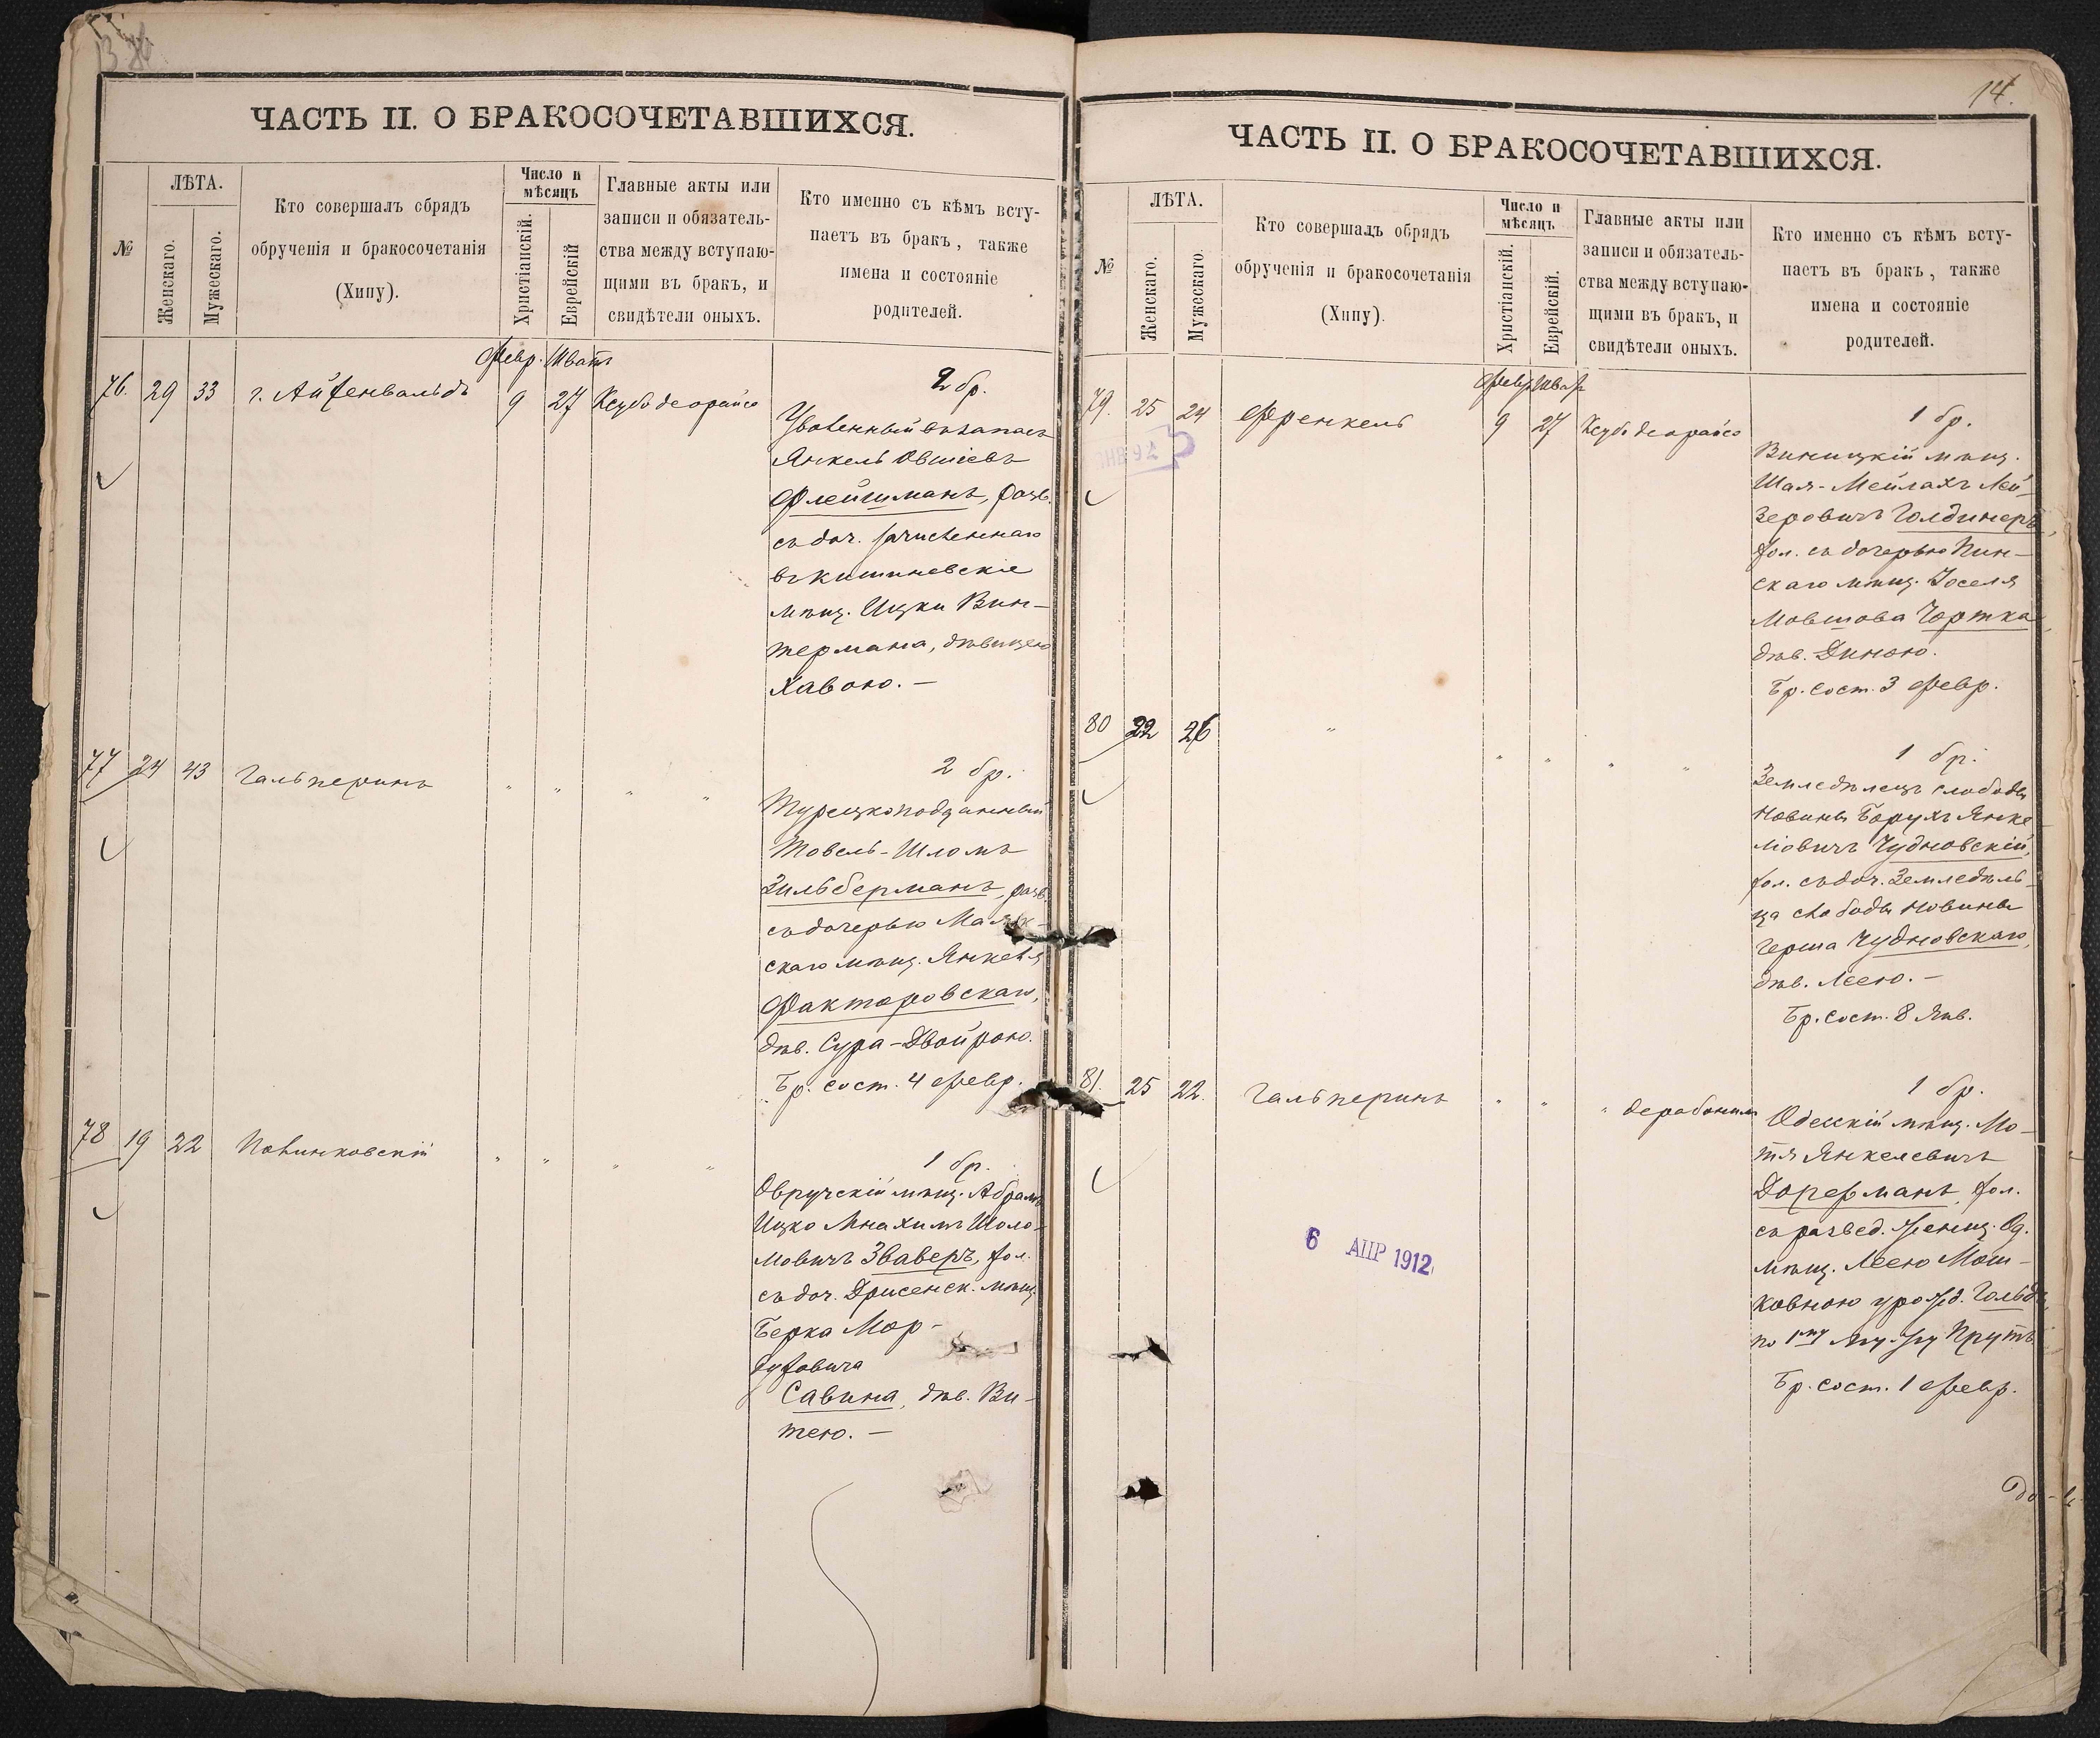 ЧАСТЬ II. О БРАКОСОЧЕТАВШИХСЯ.
№
ЛѢТА.
Женскаго.
Мужескаго.
Кто совершалъ обрядъ
обрученія и бракосочетанія
(Хипу).
Число и
мѣсяцъ
Христіанскій.
Еврейскій
Главные акты или
записи и обязатель-
ства между вступаю-
щими въ бракъ, и
свидѣтели оныхъ.
Кто именно съ кѣмъ всту-
паетъ въ бракъ, также
имена и состояніе
родителей.
Февр. Шватъ
76. 29 33 г. Айзенвальдъ 9 27 Ксубо деорайсо
2 бр.
Уволенный въ запасъ
Янкель Овшіевъ
Флейшманъ, разв.
съ доч. зачисленнаго
въ кишиневскіе
мѣщ. Ицки Вин-
термана, дѣвицею
Хавою. —
77 24 43 Гальперинъ " " " "
2 бр.
Турецкоподданный
Товель-Шломъ
Зильберманъ, разв.
съ дочерью Маяк-
скаго мѣщ. Янкеля
Факторовскаго,
дѣв. Сура-Двойрою.
Бр. сост. 4 февр.
78 19 22 Полинковскій " " " "
1 бр.
Овручскій мѣщ. Абрамъ
Ицко Мнахимъ Шоло-
мовичъ Зваверъ, хол.
съ доч. Дрисенск. мѣщ.
Берка Мор-
духовича
Савина, дѣв. Ви-
тею. —
14.
ЧАСТЬ II. О БРАКОСОЧЕТАВШИХСЯ.
№
ЛѢТА.
Женскаго.
Мужескаго.
Кто совершалъ обрядъ
обрученія и бракосочетанія
(Хипу).
Число и
мѣсяцъ
Христіанскій.
Еврейскій.
Главные акты или
записи и обязатель-
ства между вступаю-
щими въ бракъ, и
свидѣтели оныхъ.
Кто именно съ кѣмъ всту-
паетъ въ бракъ, также
имена и состояніе
родителей.
79. 25 24 Френкель 9 27 Ксубо деорайсо
1 бр.
Виницкій мѣщ.
Шая-Мейлахъ Лей-
зеровичъ Голдинеръ,
хол. съ дочерью Пин-
скаго мѣщ. Іоселя
Мовшова Чортка,
дѣв. Диною.
Бр. сост. 3 февр.
80 22 26 " " " " "
1 бр.
Земледѣлецъ слободы
Новины Борухъ Янке
ліовичъ Чудновскій,
хол. съ доч. Земледѣль-
ца слободы Новины
Герша Чудновскаго,
дѣв. Леею. —
Бр. сост. 8 Янв.
81. 25 22. Гальперинъ " " " дерабонимъ
1 бр.
Одесскій мѣщ. Мо-
тя Янкелевичъ
Дорфманъ, хол.
съ развед. женщ. Од.
мѣщ. Леею Мош-
ковною урожд. Гольдъ,
по 1му мужу Прутъ
Бр. сост. 1 февр.
6 АПР 1912